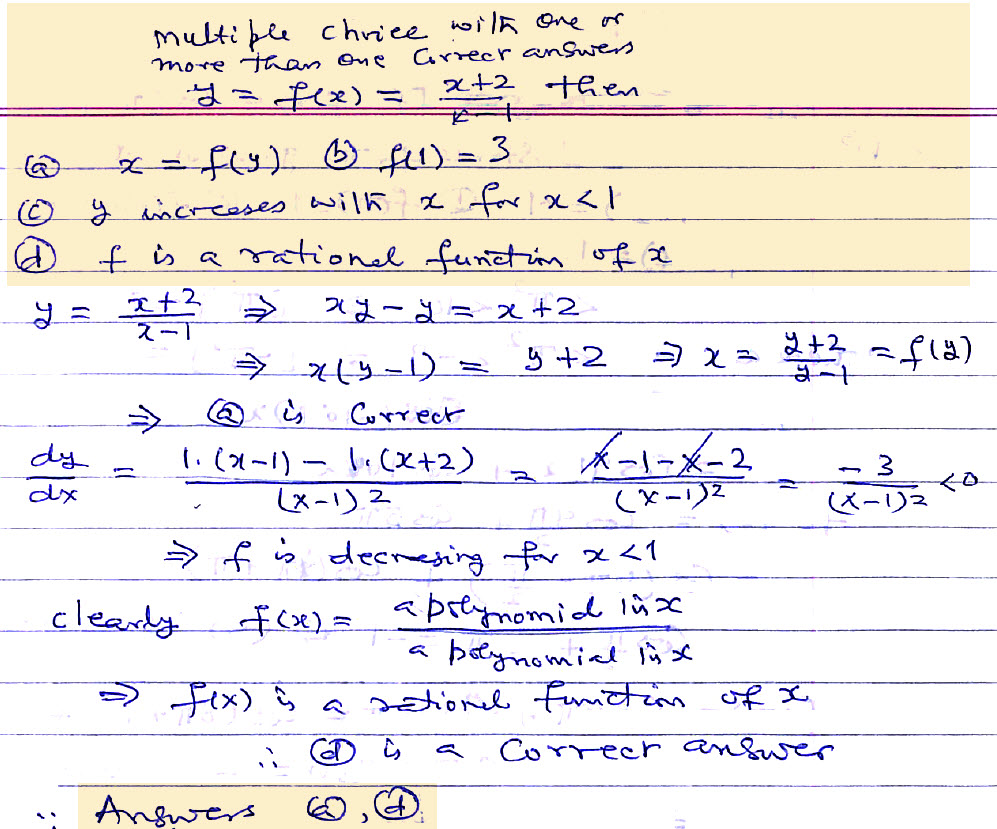 multiple choice with one or
more than one correct answers
y = f(x) = (x+2)/(x-1) then
(a) x = f(y) (b) f(1) = 3
(c) y increases with x for x<1
(d) f is a rational function of x
y = (x+2)/(x-1) ⇒ xy - y = x+2
⇒ x(y-1) = y+2 ⇒ x = (y+2)/(y-1) = f(y)
⇒ (a) is correct
dy/dx = (1·(x-1) - 1·(x+2))/(x-1)2 = (x-1-x-2)/(x-1)2 = -3/(x-1)2 <0
⇒ f is decresing for x<1
clearly f(x) = a polynomial in x / a polynomial in x
⇒ f(x) is a rational function of x
∴ (d) is a correct answer
∴ Answers (a), (d)